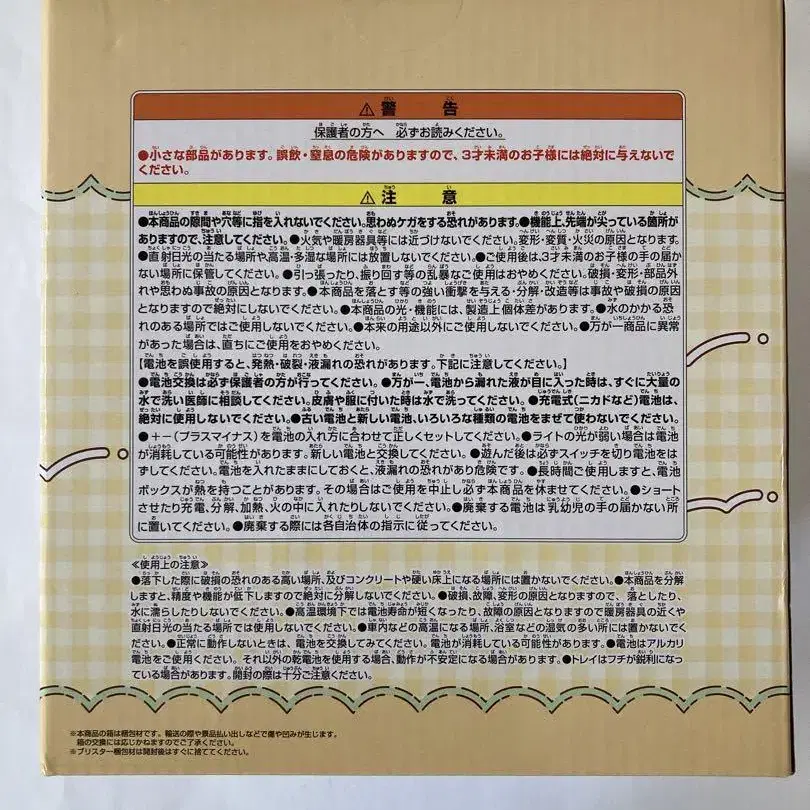 ⚠警 告
保護者の方へ 必ずお読みください。
●小さな部品があります。誤飲・窒息の危険がありますので、3才未満のお子様には絶対に与えないで
ください。
⚠注 意
●本商品の隙間や穴等に指を入れないでください。思わぬケガをする恐れがあります。●機能上、先端が尖っている箇所が
ありますので、注意してください。●火気や暖房器具等には近づけないでください。変形・変質・火災の原因となります。
●直射日光の当たる場所や高温・多湿な場所には放置しないでください。●ご使用後は、3才未満のお子様の手の届か
ない場所に保管してください。●引っ張ったり、振り回す等の乱暴なご使用はおやめください。破損・変形・部品外
れや思わぬ事故の原因となります。●本商品を落とす等の強い衝撃を与える・分解・改造等は事故や破損の原因
となりますので絶対にしないでください。●本商品の光・機能には、製造上個体差があります。●水のかかる恐
れのある場所ではご使用しないでください。●本来の用途以外にご使用しないでください。●万が一商品に異常
があった場合は、直ちにご使用をおやめください。
【電池を誤使用すると、発熱・破裂・液漏れの恐れがあります。下記に注意してください。】
●電池交換は必ず保護者の方が行ってください。●万が一、電池から漏れた液が目に入った時は、すぐに大量の
水で洗い医師に相談してください。皮膚や服に付いた時は水で洗ってください。●充電式(ニカドなど)電池は、
絶対に使用しないでください。●古い電池と新しい電池、いろいろな種類の電池をまぜて使わないでください。
●+−(プラスマイナス)を電池の入れ方に合わせて正しくセットしてください。●ライトの光が弱い場合は電池
が消耗している可能性があります。新しい電池と交換してください。●遊んだ後は必ずスイッチを切り電池をは
ずしてください。電池を入れたままにしておくと、液漏れの恐れがあり危険です。●長時間ご使用しますと、電池
ボックスが熱を持つことがあります。その場合はご使用を中止し必ず本商品を休ませてください。●ショート
させたり充電、分解、加熱、火の中に入れたりしないでください。●廃棄する電池は乳幼児の手の届かない所
に置いてください。●廃棄する際には各自治体の指示に従ってください。
≪使用上の注意≫
●落下した際に破損の恐れのある高い場所、及びコンクリートや硬い床上になる場所には置かないでください。●本商品を分解
しますと、精度や機能が低下しますので絶対に分解しないでください。●破損、故障、変形の原因となりますので、落としたり、
水に濡らしたりしないでください。●高温環境下では電池寿命が短くなったり、故障の原因となりますので暖房器具の近くや
直射日光の当たる場所では使用しないでください。●車内などの高温になる場所、浴室などの湿気の多い所には置かないでく
ださい。●正常に動作しないときは、電池を交換してみてください。電池が消耗している可能性があります。●電池はアルカリ
電池をご使用ください。それ以外の乾電池を使用する場合、動作が不安定になる場合があります。●トレイはフチが鋭利になっ
ている場合があります。開封の際は十分ご注意ください。
※本商品の箱は梱包材です。輸送の際や景品払い出しなどで傷や凹みが生じます。
箱の交換には応じかねますのでご了承ください。
※ブリスター梱包材は開封後はすぐに捨ててください。